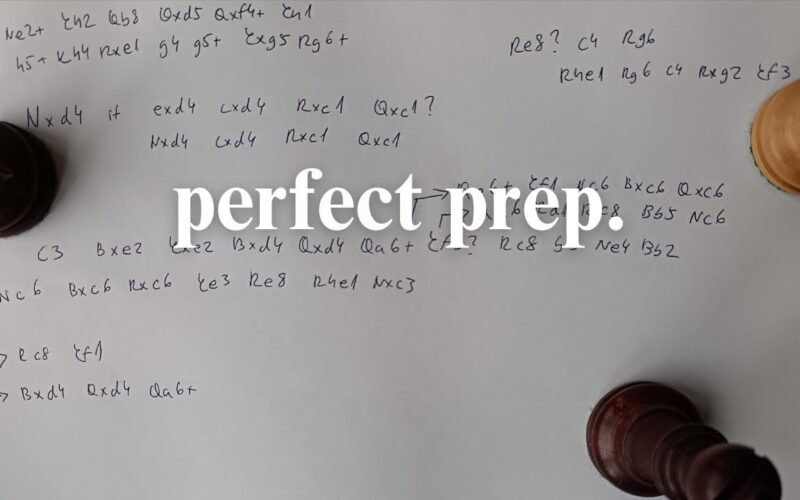 Ne2+ Kh2 Qb8 Qxd5 Qxf4+ Kh1
h5+ Kh4 Rxe1 g4 g5+ Kxg5 Rg6+
Re8? c4 Rg6
Rhe1 Rg6 c4 Rxg2 Kf3
Nxd4 if exd4 cxd4 Rxc1 Qxc1?
Nxd4 cxd4 Rxc1 Qxc1
perfect prep.
Kf1 Nc6 Bxc6 Qxc6
Bb5 Nc6
c3 Bxe2 Kxe2 Bxd4 Qxd4 Qa6+ Rc8 Ne4 Bb2
Nc6 Bxc6 Rxc6 Ke3 Re8 Rhe1 Nxc3
Rc8 Kf1
Bxd4 Qxd4 Qa6+